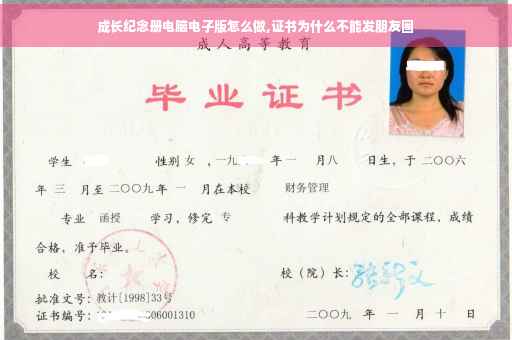 成长纪念册电脑电子版怎么做,证书为什么不能发朋友圈
成人高等教育
毕业证书
学生 性别 女 ,一九 年一 月八 日生,于二〇〇六
年 三 月至二〇〇九年 一 月在本校 财务管理
专业 函授 学习,修完 专 科教学计划规定的全部课程,成绩
合格,准予毕业。
校 名: 校(院)长:
批准文号:教计[1998]33号
证书编号: 06001310 二〇〇九 年 一 月 十 日